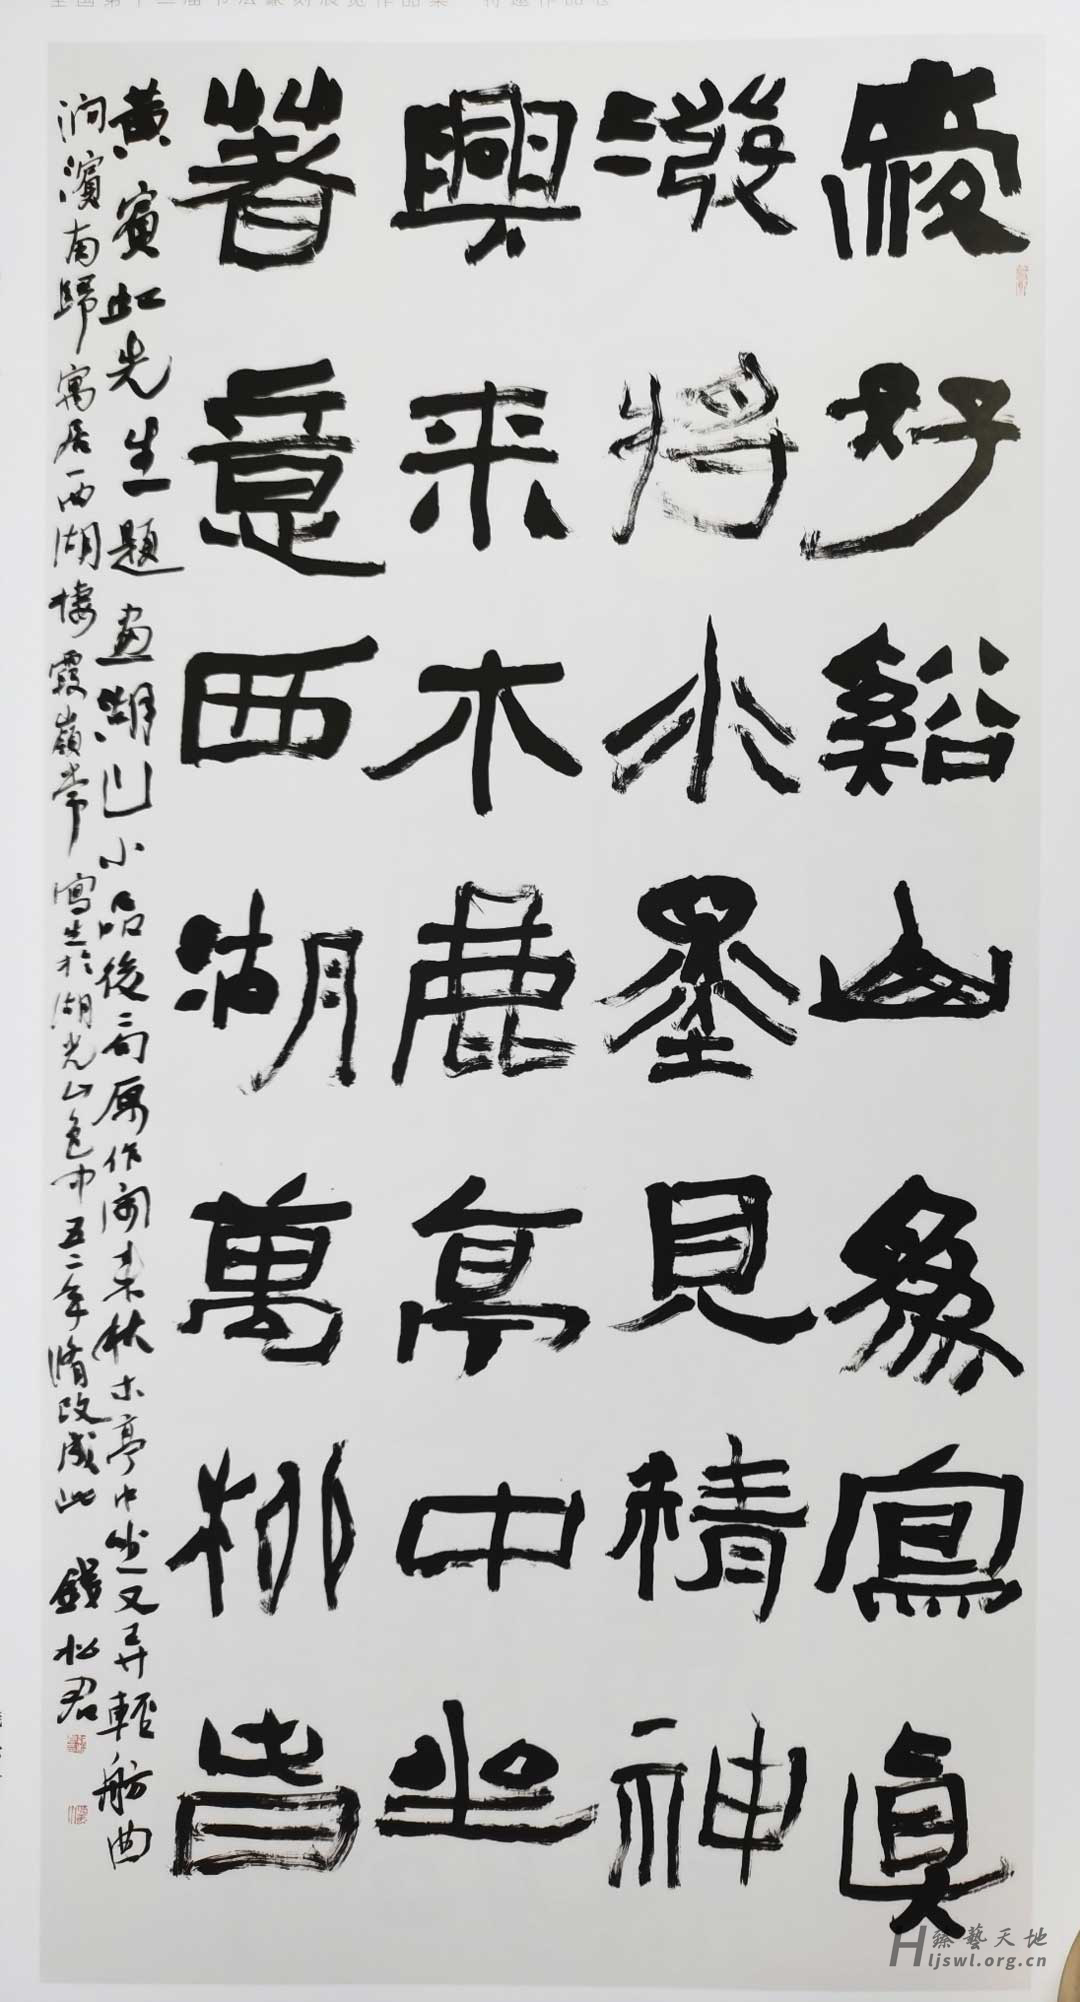 全国第十二届书法篆刻展览作品集 特邀作品卷
愛好谿山為寫真
潑將水墨見精神
興来木鹿亭中坐
著意西湖萬柳春
黄賓虹先生題畫湖山小品後二句原作闲来林木亭中坐又弄輕舫曲
澗濱南歸寓居西湖棲霞嶺常寫生於湖光山色中五二年脩改成此 松君
臻藝天地
Hljswl.org.cn